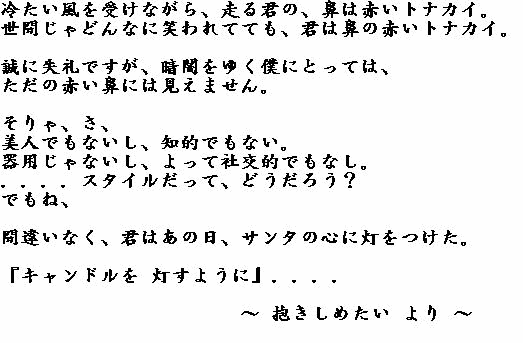 冷たい風を受けながら、走る君の、鼻は赤いトナカイ。
世間じゃどんなに笑われてても、君は鼻の赤いトナカイ。
誠に失礼ですが、暗闇をゆく僕にとっては、
ただの赤い鼻には見えません。
そりゃ、さ、
美人でもないし、知的でもない。
器用じゃないし、よって社交的でもなし。
．．．．スタイルだって、どうだろう？
でもね、
間違いなく、君はあの日、サンタの心に灯をつけた。
『キャンドルを 灯すように』．．．．
～ 抱きしめたい より ～